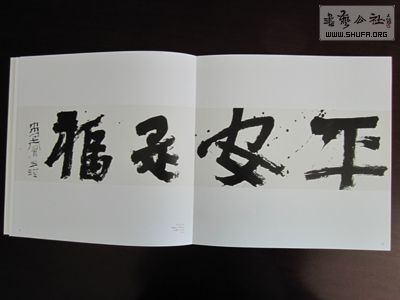 平安是福
書藝公社
WWW.SHUFA.ORG